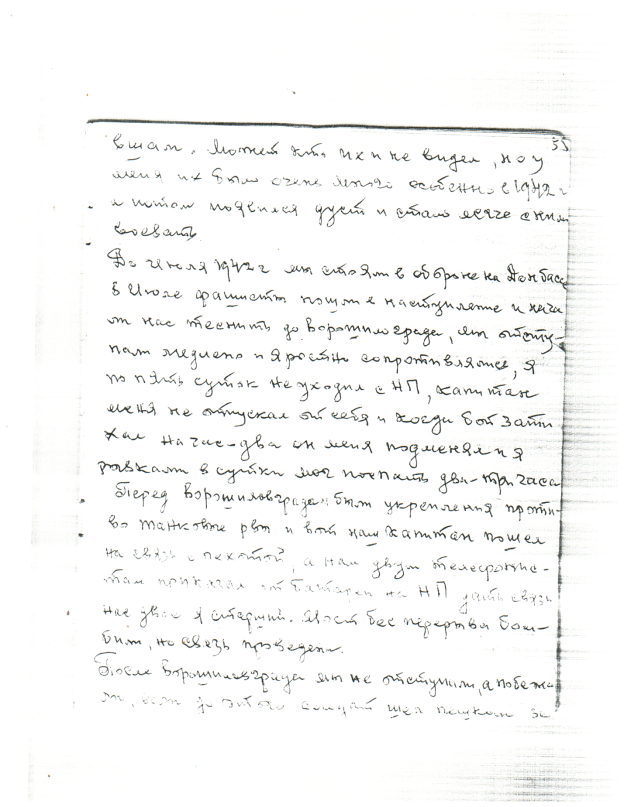 55
вшам. Может кто их и не видел, но у
меня их было очень много особенно в 1942 г
и потом появился дуст и стало легче с ними
воевать
До Июля 1942 г мы стояли в обороне на Донбасе
в Июле фашисты пошли в наступление и нача
ли нас теснить до Ворошиловграда, мы отсту-
пали медлено и яростно сопротивлялись, я
по пять суток не уходил с НП, капитан
меня не отпускал от себя и когди бой зати
хал на час-два он меня подменял и я
рывками в сутки мог поспать два-три часа
Перед Ворошиловградом были укрепления проти-
во танковые рвы и вот наш капитан пошел
на связь с пехотой, а нам двум телефонис-
там приказал от батареи на НП дать связь
нас двое я старший. Мост бес перерыва бом-
били, но связь проведена.
После Ворошиловграда мы не отступили, а побежа
ли, если до этого солдат шел пешком за